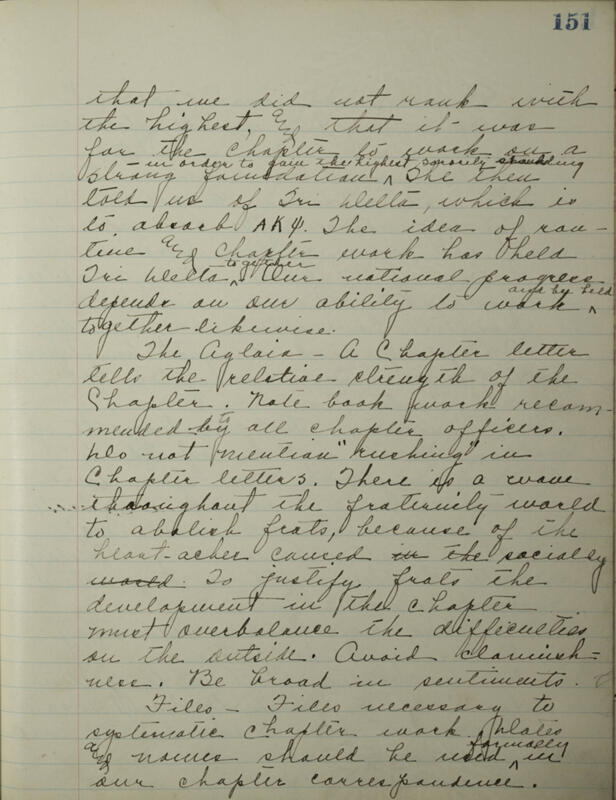 151
that we did not rank with
the highest, & that it was
for the chapter to work on a
in order to gain the highest sorority standing
strong foundation ^ She then
told us of Tri Delta, which is
to absorb ΑΚΨ. The idea of rou-
tine & chapter work has held
together
Tri Delta ^. Our national progress
and be held
depends on our ability to work ^
together likewise.
The Aglaia – A Chapter letter
tells the relative strength of the
Chapter. Note book work recom-
mended by all chapter officers.
Do not mention "rushing" in
Chapter letters. There is a wave
throughout the fraternity world
to abolish frats, because of the
heart-aches caused in the socially
world. To justify frats the
development in the chapter
must overbalance the difficulties
on the outside. Avoid clannish-
ness. Be broad in sentiments.
Files – Files necessary to
systematic chapter work.
formally
& names should be used ^ in
our chapter correspondence.